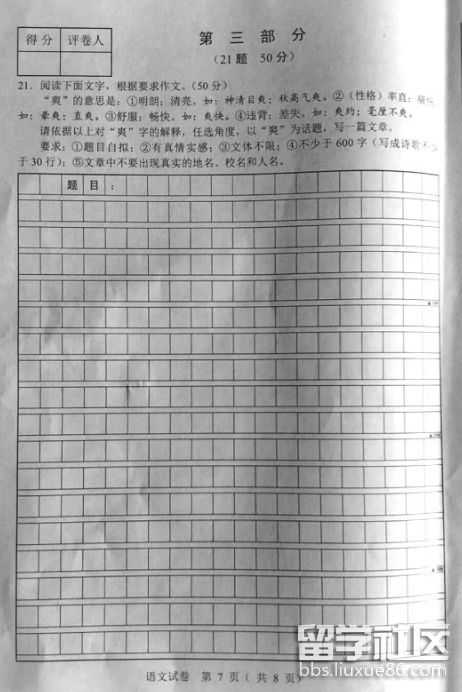 得分 评卷人
第三部分
(21题 50分)
21. 阅读下面文字，根据要求作文。(50分)
“爽”的意思是：①明朗；清亮。如：神清目爽；秋高气爽。②（性格）率直；痛快。
如：豪爽；直爽。③舒服；畅快。如：爽快。④违背；差失。如：爽约；毫厘不爽。
请依据以上对“爽”字的解释，任选角度，以“爽”为话题，写一篇文章。
要求：①题目自拟；②有真情实感；③文体不限；④不少于600字（写成诗歌不少
于30行）；⑤文章中不要出现真实的地名、校名和人名。
题目：
语文试卷 第7页（共8页）
留学社区
bbs.liuxue86.com